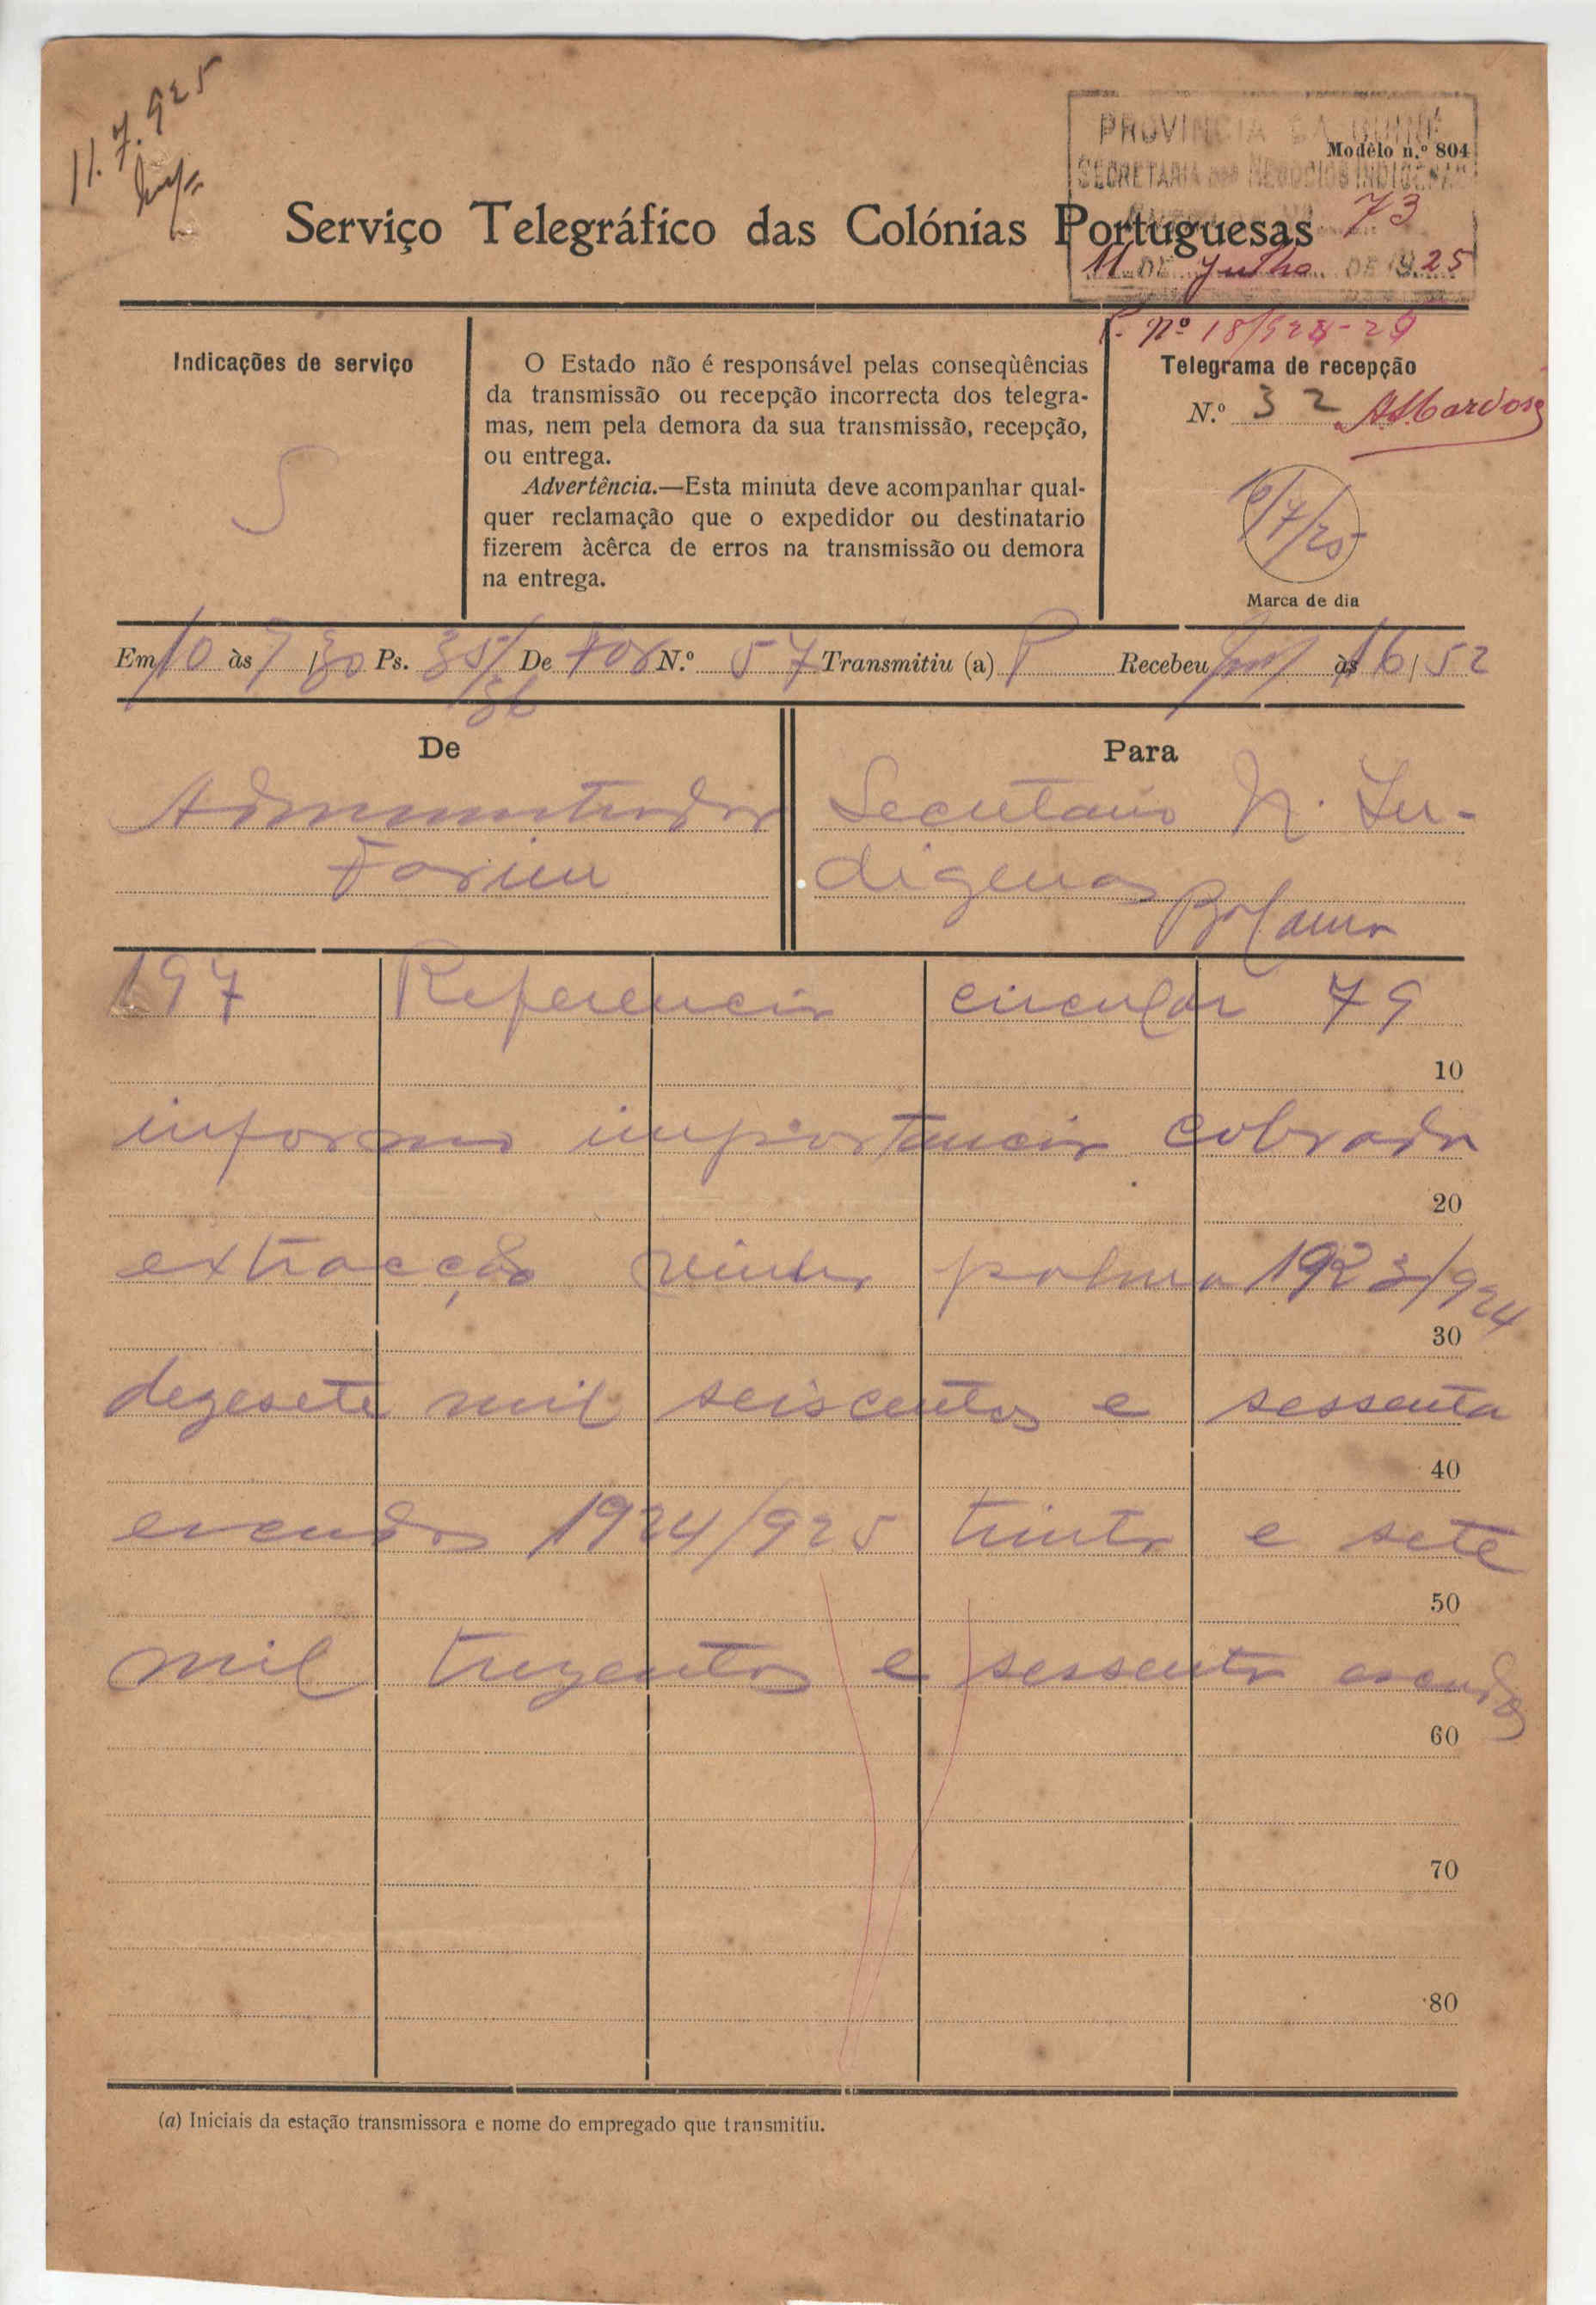 11.7.925
PROVINCIA DA GUINÉ
Modêlo n.º 804
SECRETARIA DOS NEGOCIOS INDIGENAS
73
Serviço Telegráfico das Colónias Portuguesas
11 DE Julho DE 1925
P. nº 18/924-25
Indicações de serviço
S
O Estado não é responsável pelas conseqùências
da transmissão ou recepção incorrecta dos telegra-
mas, nem pela demora da sua transmissão, recepção,
ou entrega.
Advertência.—Esta minuta deve acompanhar qual-
quer reclamação que o expedidor ou destinatario
fizerem àcêrca de erros na transmissão ou demora
na entrega.
Telegrama de recepção
N.º 32
10/7/25
Marca de dia
Em 10 às 7/30 Ps. 35/36 De For N.º 57 Transmitiu (a) P Recebeu às 16/52
De
Administrador
Farim
Para
Secretario N. In-
digenas
Bolama
197 Referencia circular 79
10
informo importancia cobrada
20
extracção vinho palma 1923/924
30
dezesete mil seiscentos e sessenta
40
escudos 1924/925 trinta e sete
50
mil trezentos e sessenta escudos
60
70
80
(a) Iniciais da estação transmissora e nome do empregado que transmitiu.